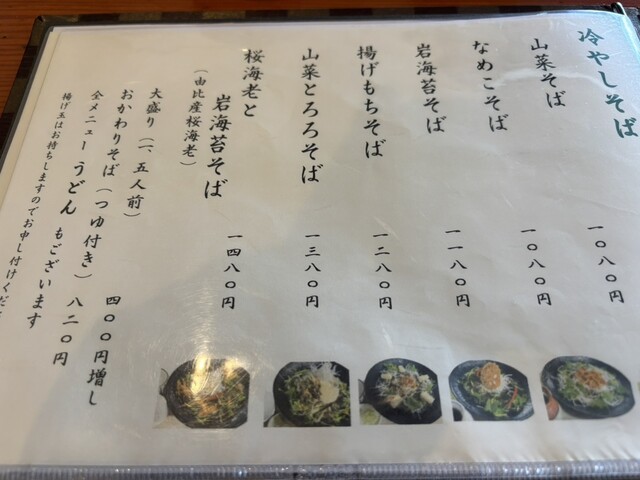 冷やしそば
山菜そば 一〇八〇円
なめこそば 一〇八〇円
岩海苔そば 一一八〇円
揚げもちそば 一二八〇円
山菜とろろそば 一三八〇円
桜海老と
岩海苔そば 一四八〇円
（由比産桜海老）
大盛り（一、五人前） 四〇〇円増し
おかわりそば（つゆ付き） 八二〇円
全メニューうどんもございます
揚げ玉はお持ちしますのでお申し付けくだ